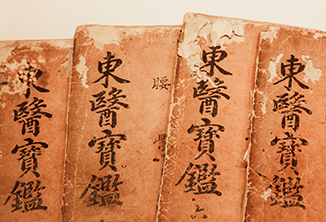 東醫寶鑑
東醫寶鑑
東醫寶鑑
六
東醫寶鑑